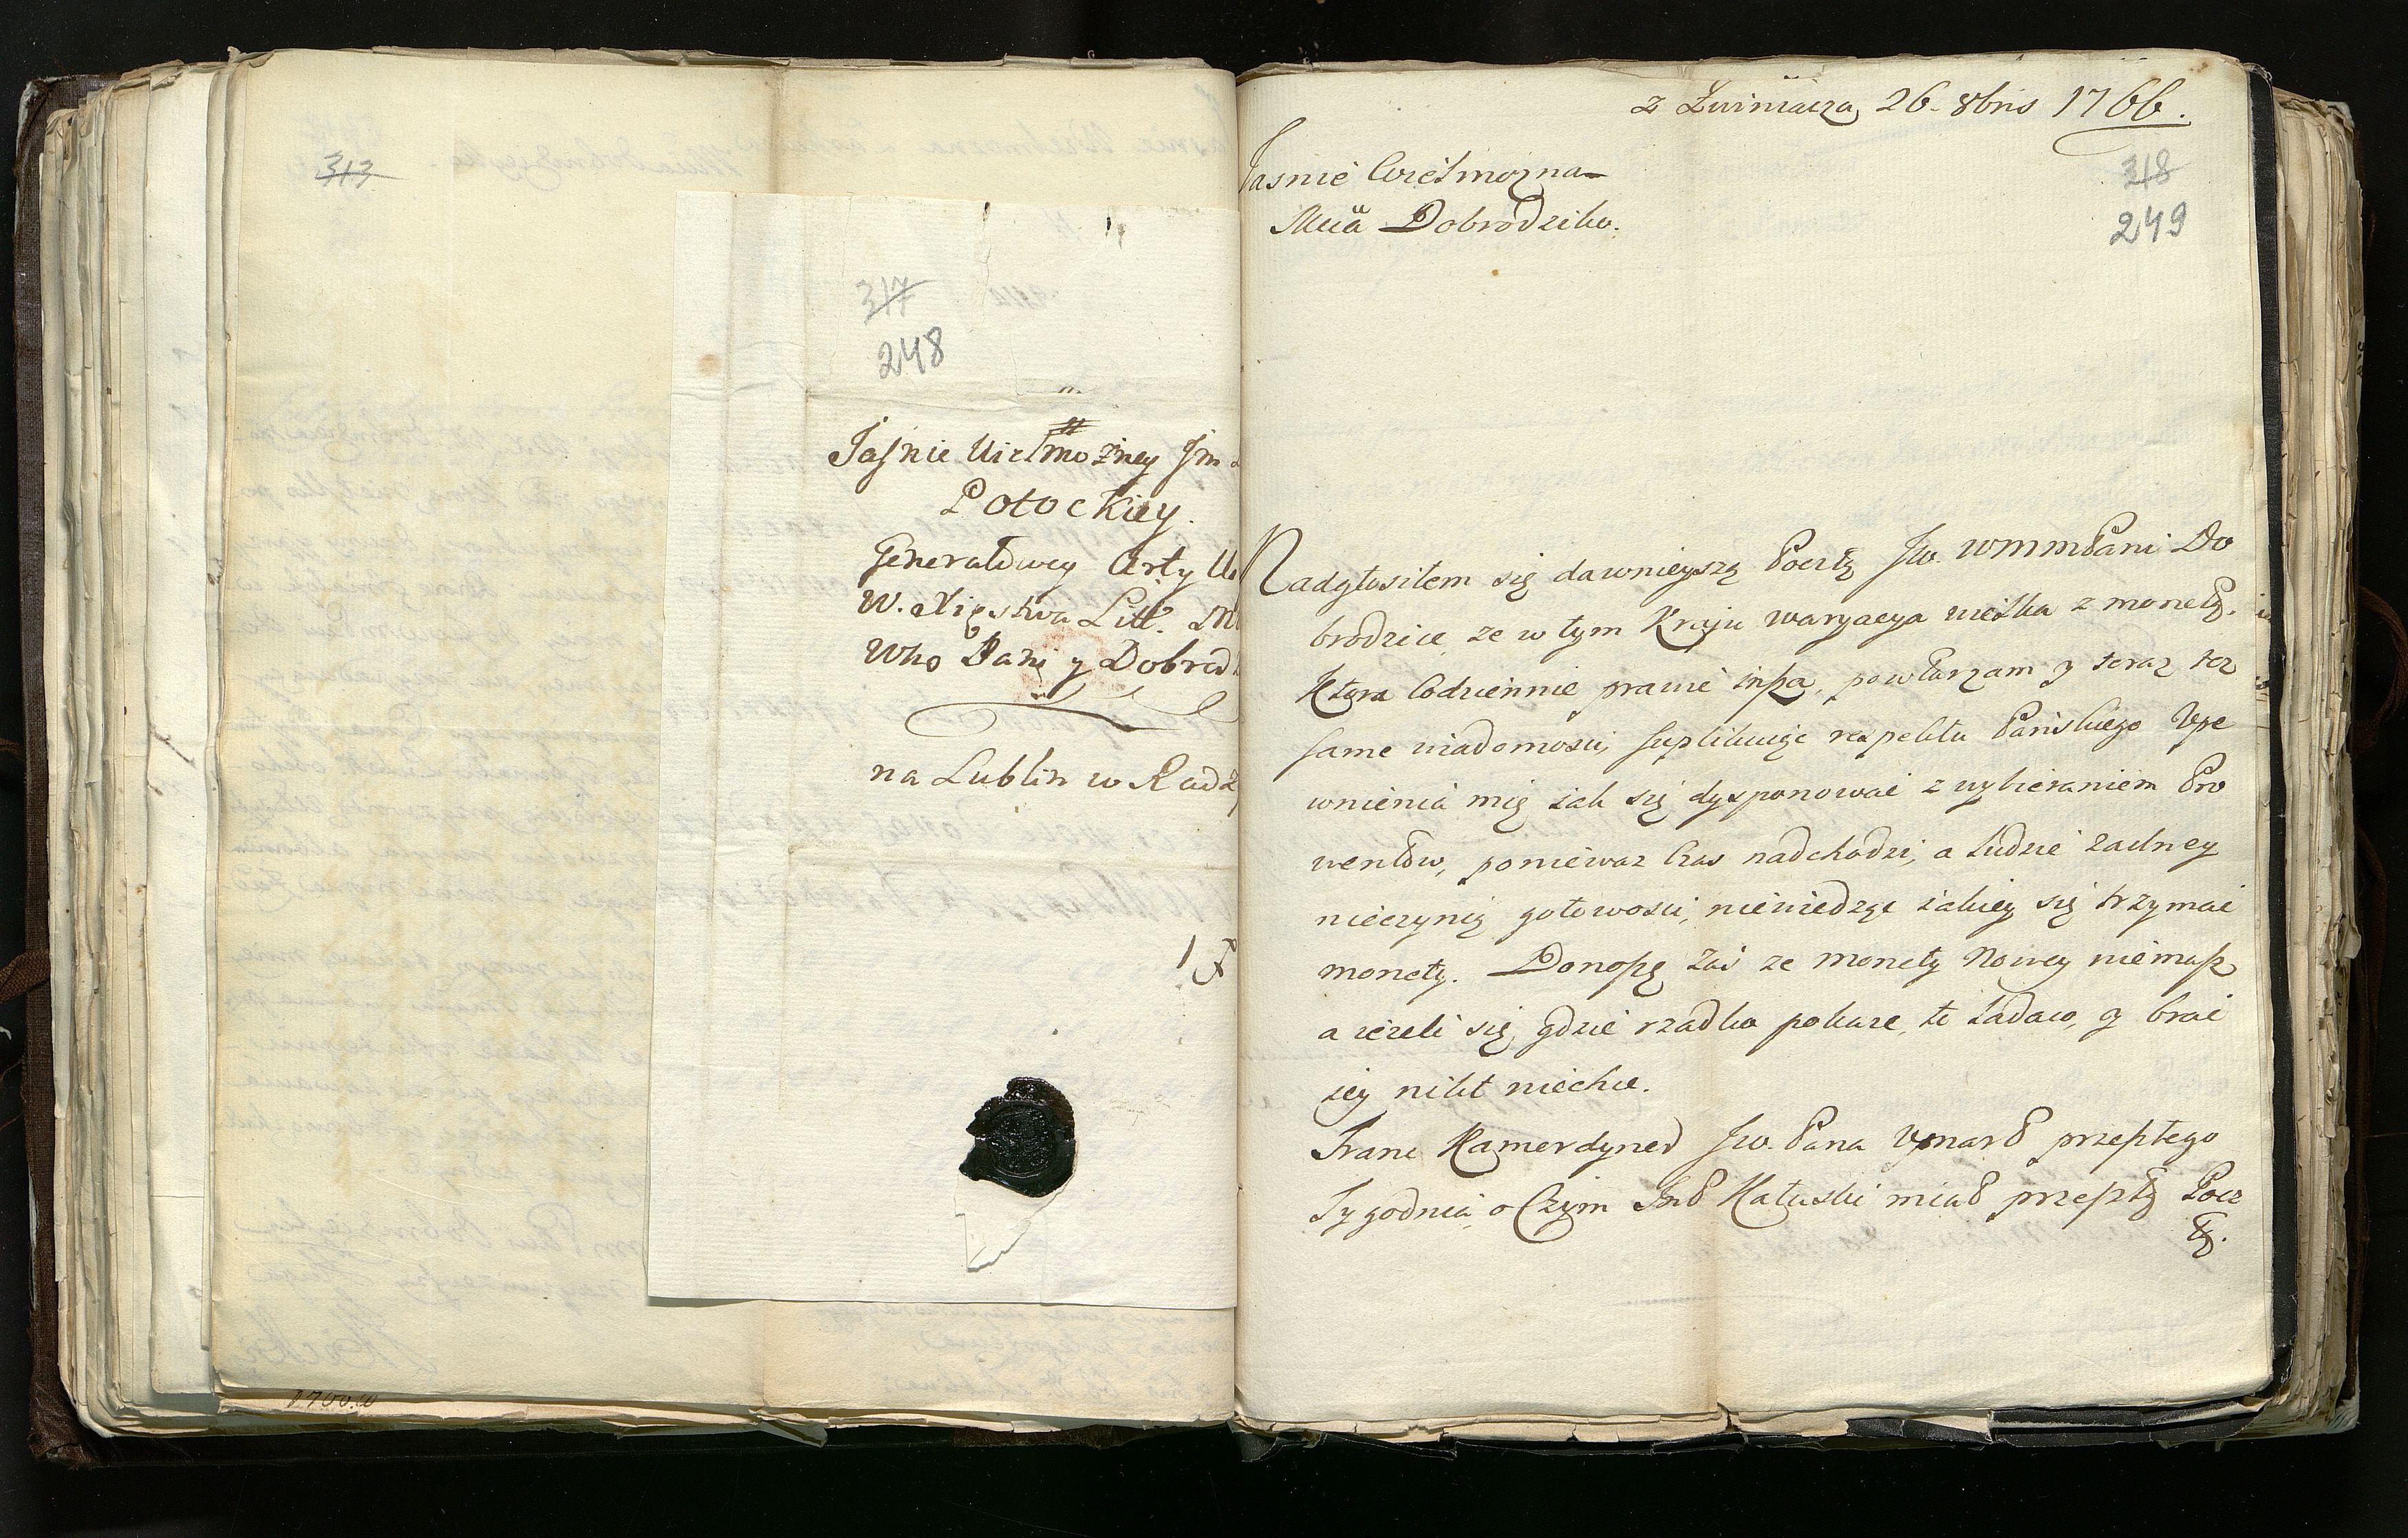 313
317
248
Jasnie Wielmożney Jm
Potockiey.
Generałowey Artylle
W. Xięstwa Litt. M
Who Pani y Dobrod
na Lublin w Radz
1700.w
z Zwiniacza 26. 8bris 1766.
318
249
Jasnie Wielmożna
Mcia Dobrodziko.
Nadgłosiłem się dawnieyszą Pocztą Jw. WMMPani Do
brodzice, ze w tym Kraju waryacya wielka z monetą.
Ktora Codziennie prawie insza, powtarzam y teraz tez
same wiadomosci, supplikuięc respektu Pańskiego Upe
wnienia mię iak się dysponować z wybieraniem Pro
wentow, poniewaz Czas nadchodzi, a ludzie zadney
nieczynią gotowosci, niewiedzęc iakiey się trzymać
monety. Donoszę zaś ze monety Nowey niemasz
a iezeli się gdzie rzadko pokaze, to ladaco, y brać
iey nikt niechce.
Franc Kamerdyner Jw. Pana Vmarł przeszłego
Tygodnia, o Czym JmP Kałuski miał przeszłą Pocz
tą.